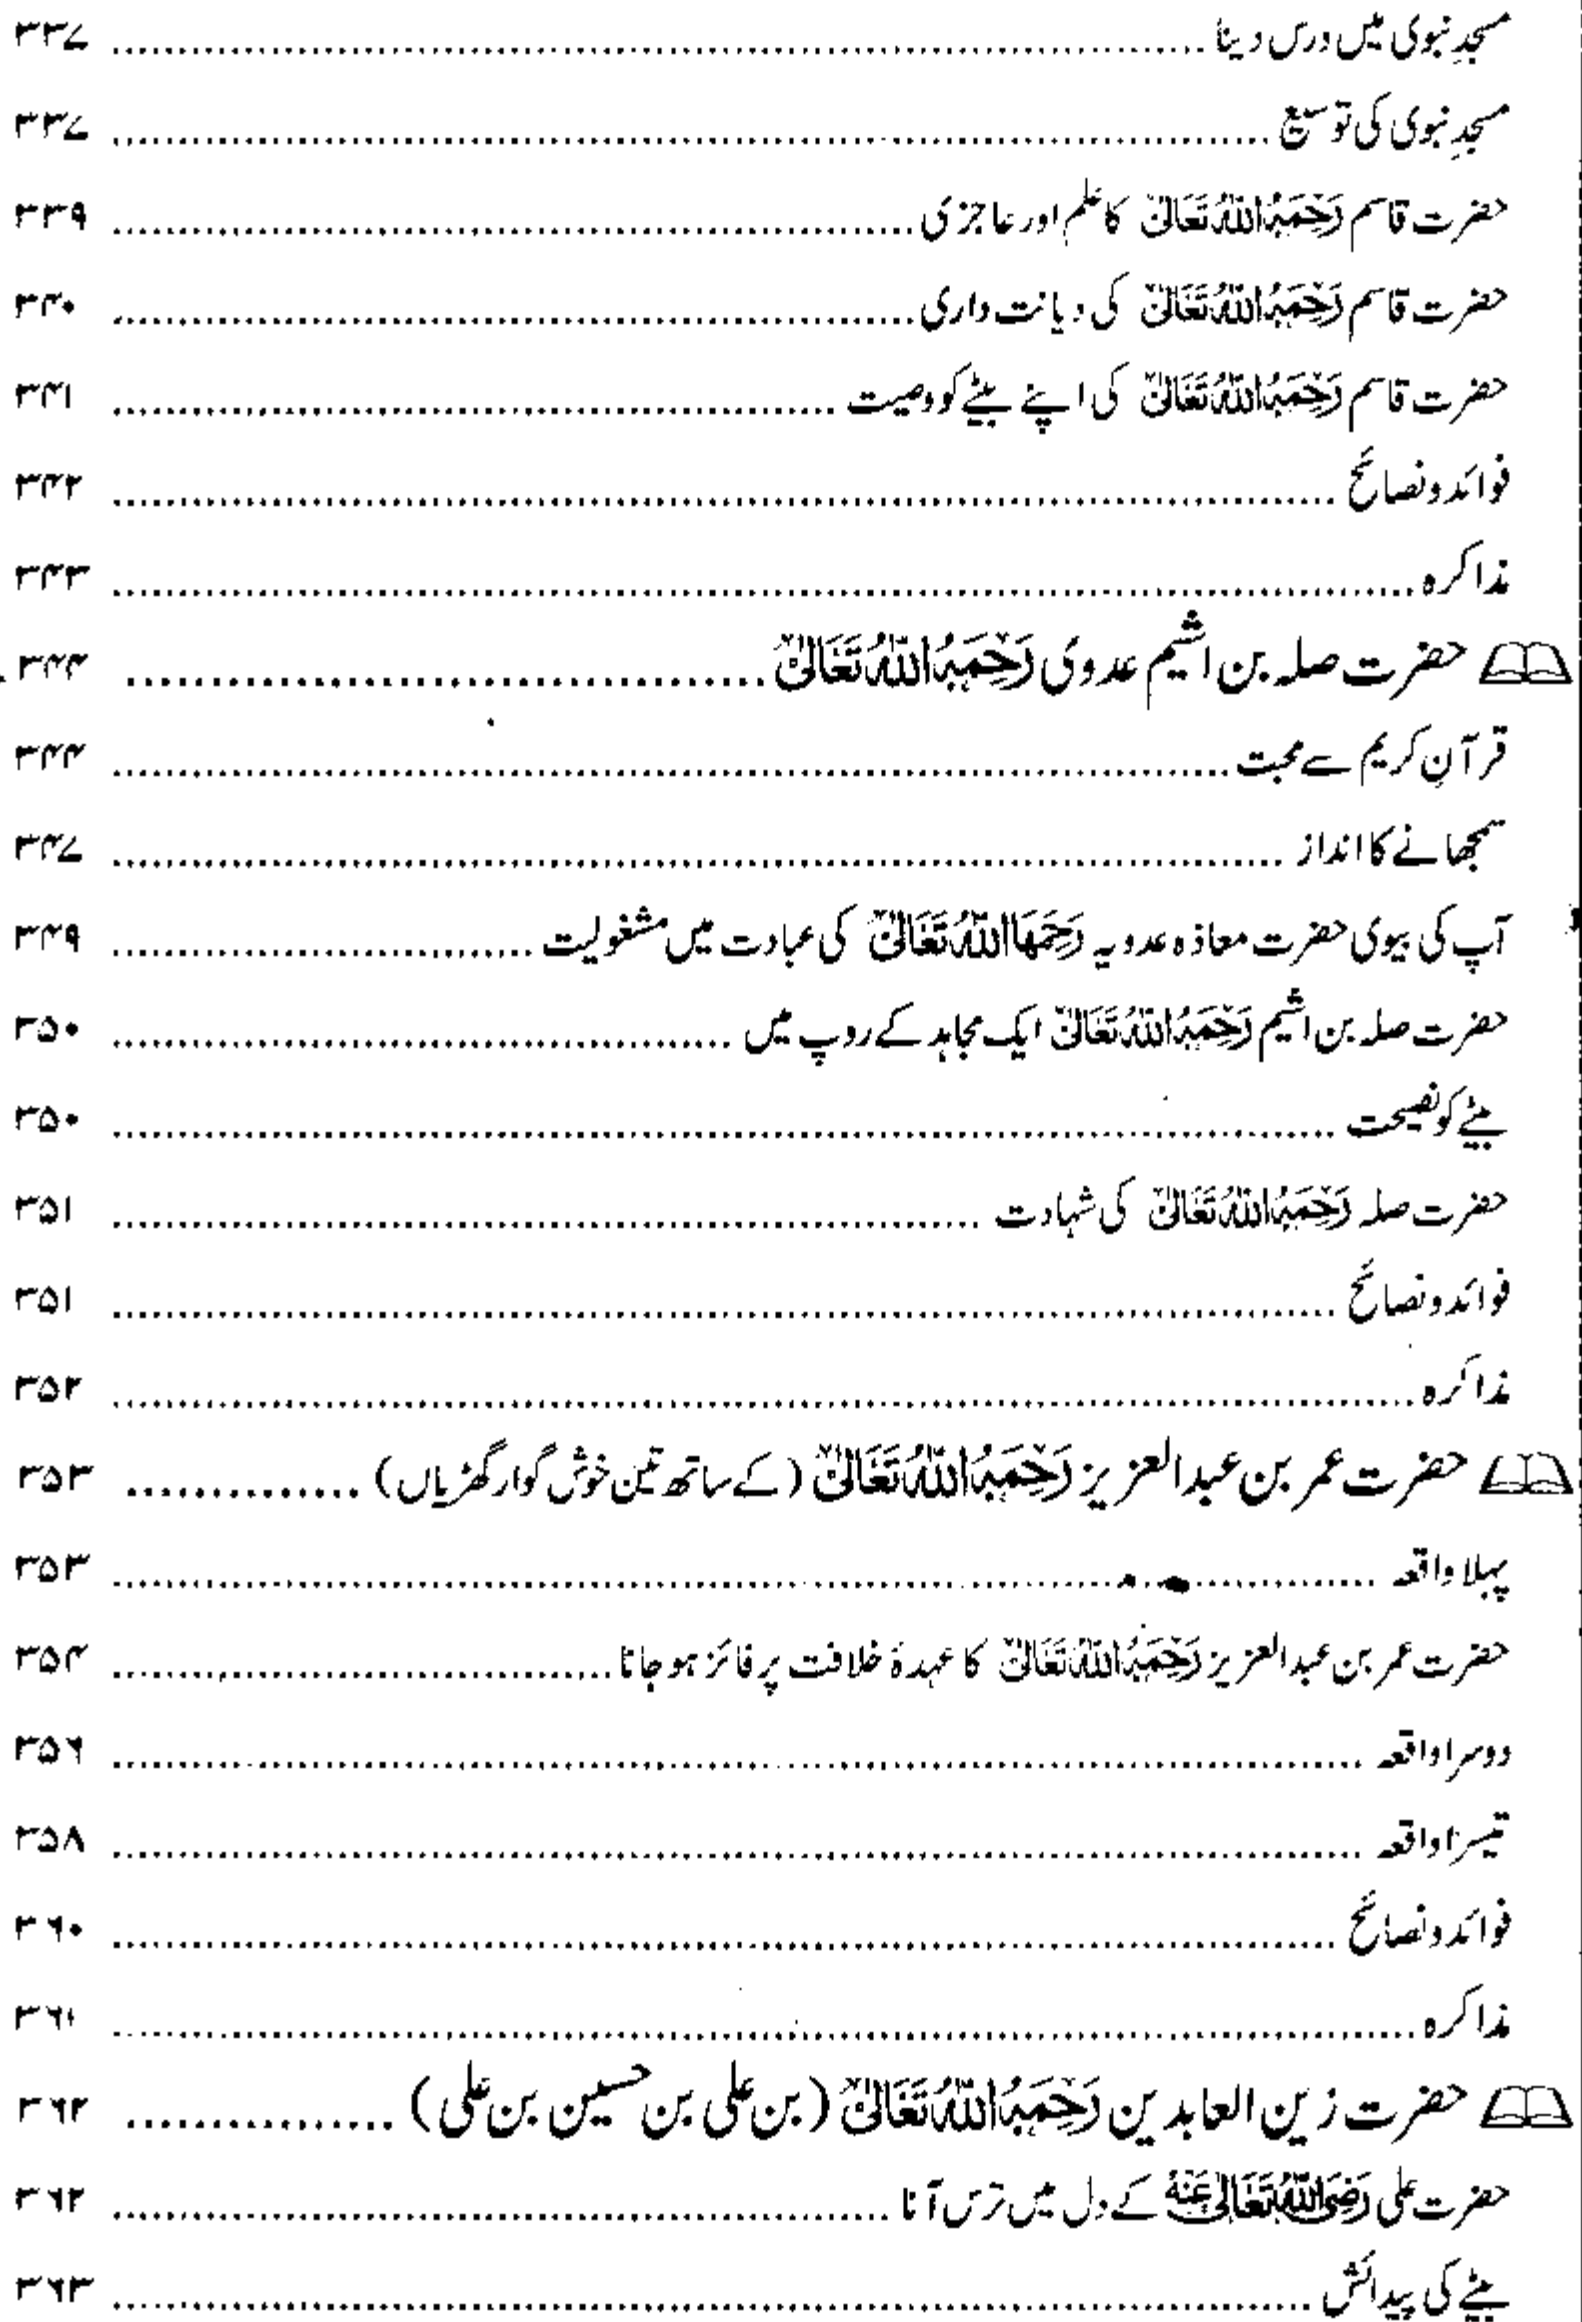 مسجدِ نبوی میں درس دینا ........ ۳۳۷
مسجدِ نبوی کی توسیع ........ ۳۳۷
حضرت قاسم رَحِمَہُ اللّٰہُ تَعَالٰی کا علم اور عاجزی ........ ۳۳۹
حضرت قاسم رَحِمَہُ اللّٰہُ تَعَالٰی کی دیانت داری ........ ۳۴۰
حضرت قاسم رَحِمَہُ اللّٰہُ تَعَالٰی کی اپنے بیٹے کو وصیت ........ ۳۴۱
فوائد و نصائح ........ ۳۴۲
مذاکرہ ........ ۳۴۳
حضرت صلہ بن اشیم عدوی رَحِمَہُ اللّٰہُ تَعَالٰی ........ ۳۴۴
قرآنِ کریم سے محبت ........ ۳۴۴
سمجھانے کا انداز ........ ۳۴۷
آپ کی بیوی حضرت معاذہ عدویہ رَحِمَہَا اللّٰہُ تَعَالٰی کی عبادت میں مشغولیت ........ ۳۴۹
حضرت صلہ بن اشیم رَحِمَہُ اللّٰہُ تَعَالٰی ایک مجاہد کے روپ میں ........ ۳۵۰
بیٹے کو نصیحت ........ ۳۵۰
حضرت صلہ رَحِمَہُ اللّٰہُ تَعَالٰی کی شہادت ........ ۳۵۱
فوائد و نصائح ........ ۳۵۱
مذاکرہ ........ ۳۵۲
حضرت عمر بن عبدالعزیز رَحِمَہُ اللّٰہُ تَعَالٰی (کے ساتھ تین خوش گوار گھڑیاں) ........ ۳۵۳
پہلا واقعہ ........ ۳۵۳
حضرت عمر بن عبدالعزیز رَحِمَہُ اللّٰہُ تَعَالٰی کا عہدۂ خلافت پر فائز ہو جانا ........ ۳۵۴
دوسرا واقعہ ........ ۳۵۶
تیسرا واقعہ ........ ۳۵۸
فوائد و نصائح ........ ۳۶۰
مذاکرہ ........ ۳۶۱
حضرت زین العابدین رَحِمَہُ اللّٰہُ تَعَالٰی (بن علی بن حسین بن علی) ........ ۳۶۲
حضرت علی رَضِیَ اللّٰہُ تَعَالٰی عَنْہُ کے دل میں ترس آنا ........ ۳۶۲
بیٹے کی پیدائش ........ ۳۶۳